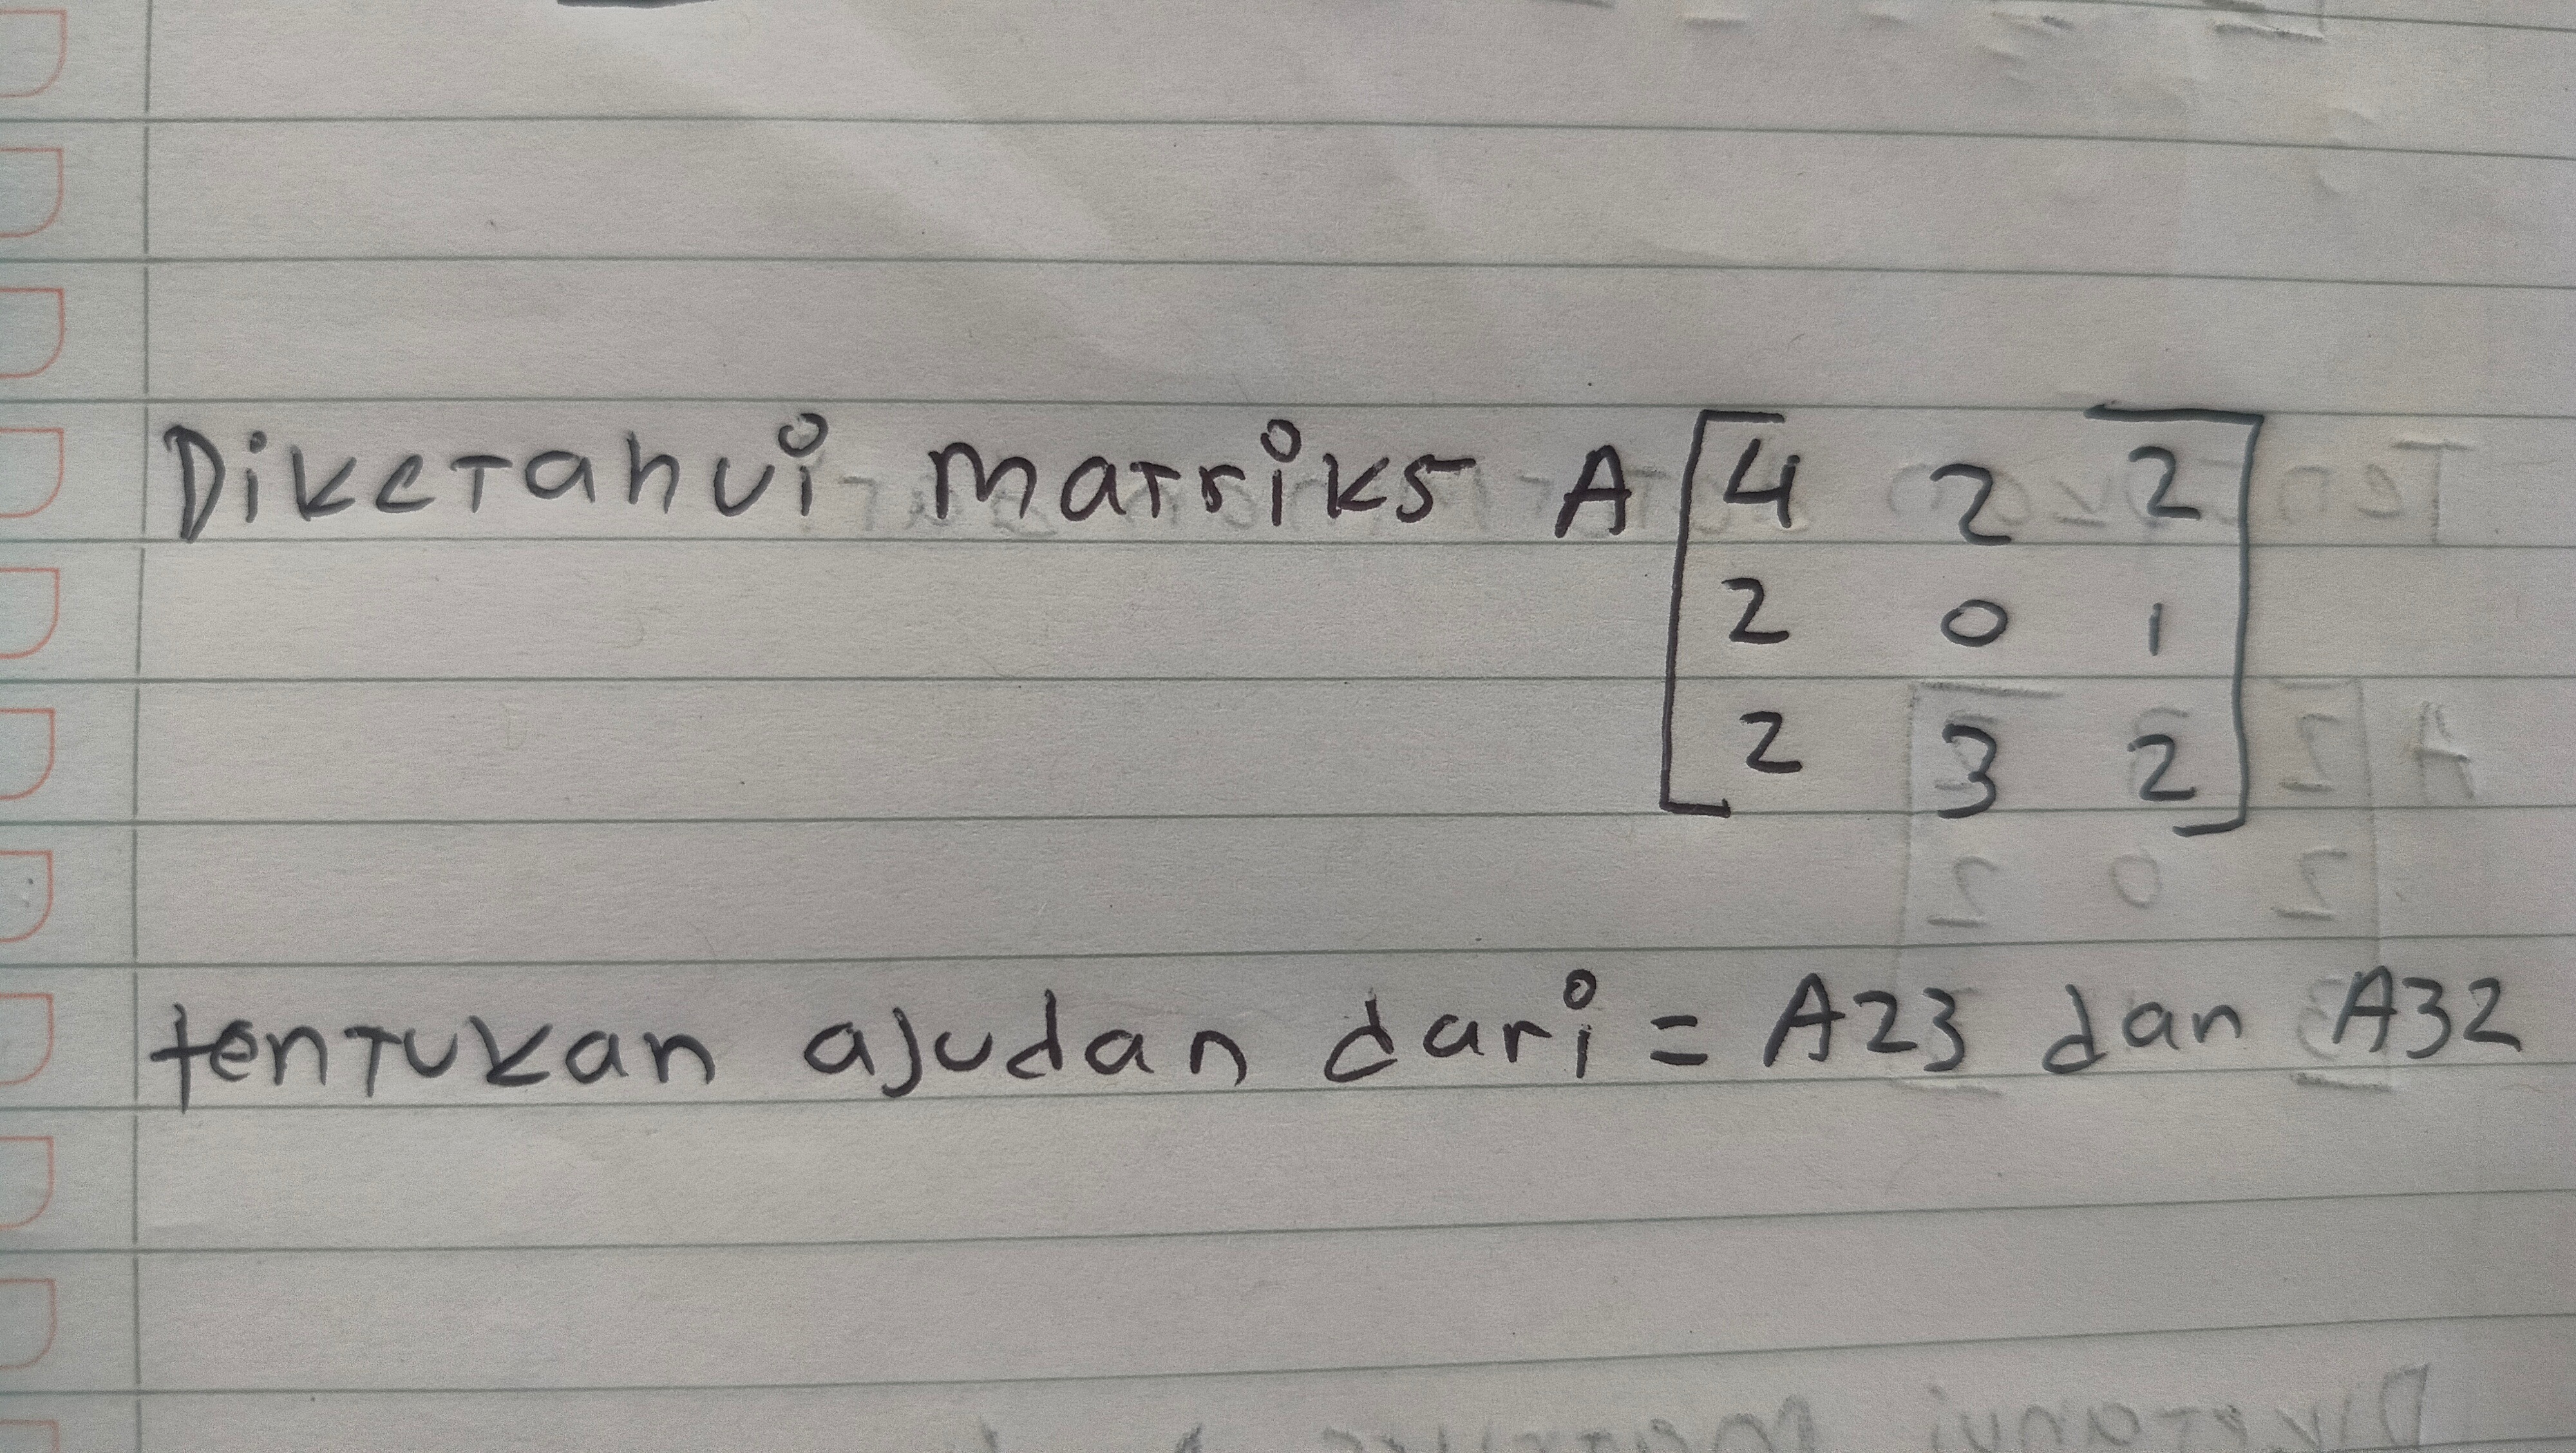 Diketahui matriks A [4 2 2
2 0 1
2 3 2]
tentukan ajudan dari = A23 dan A32